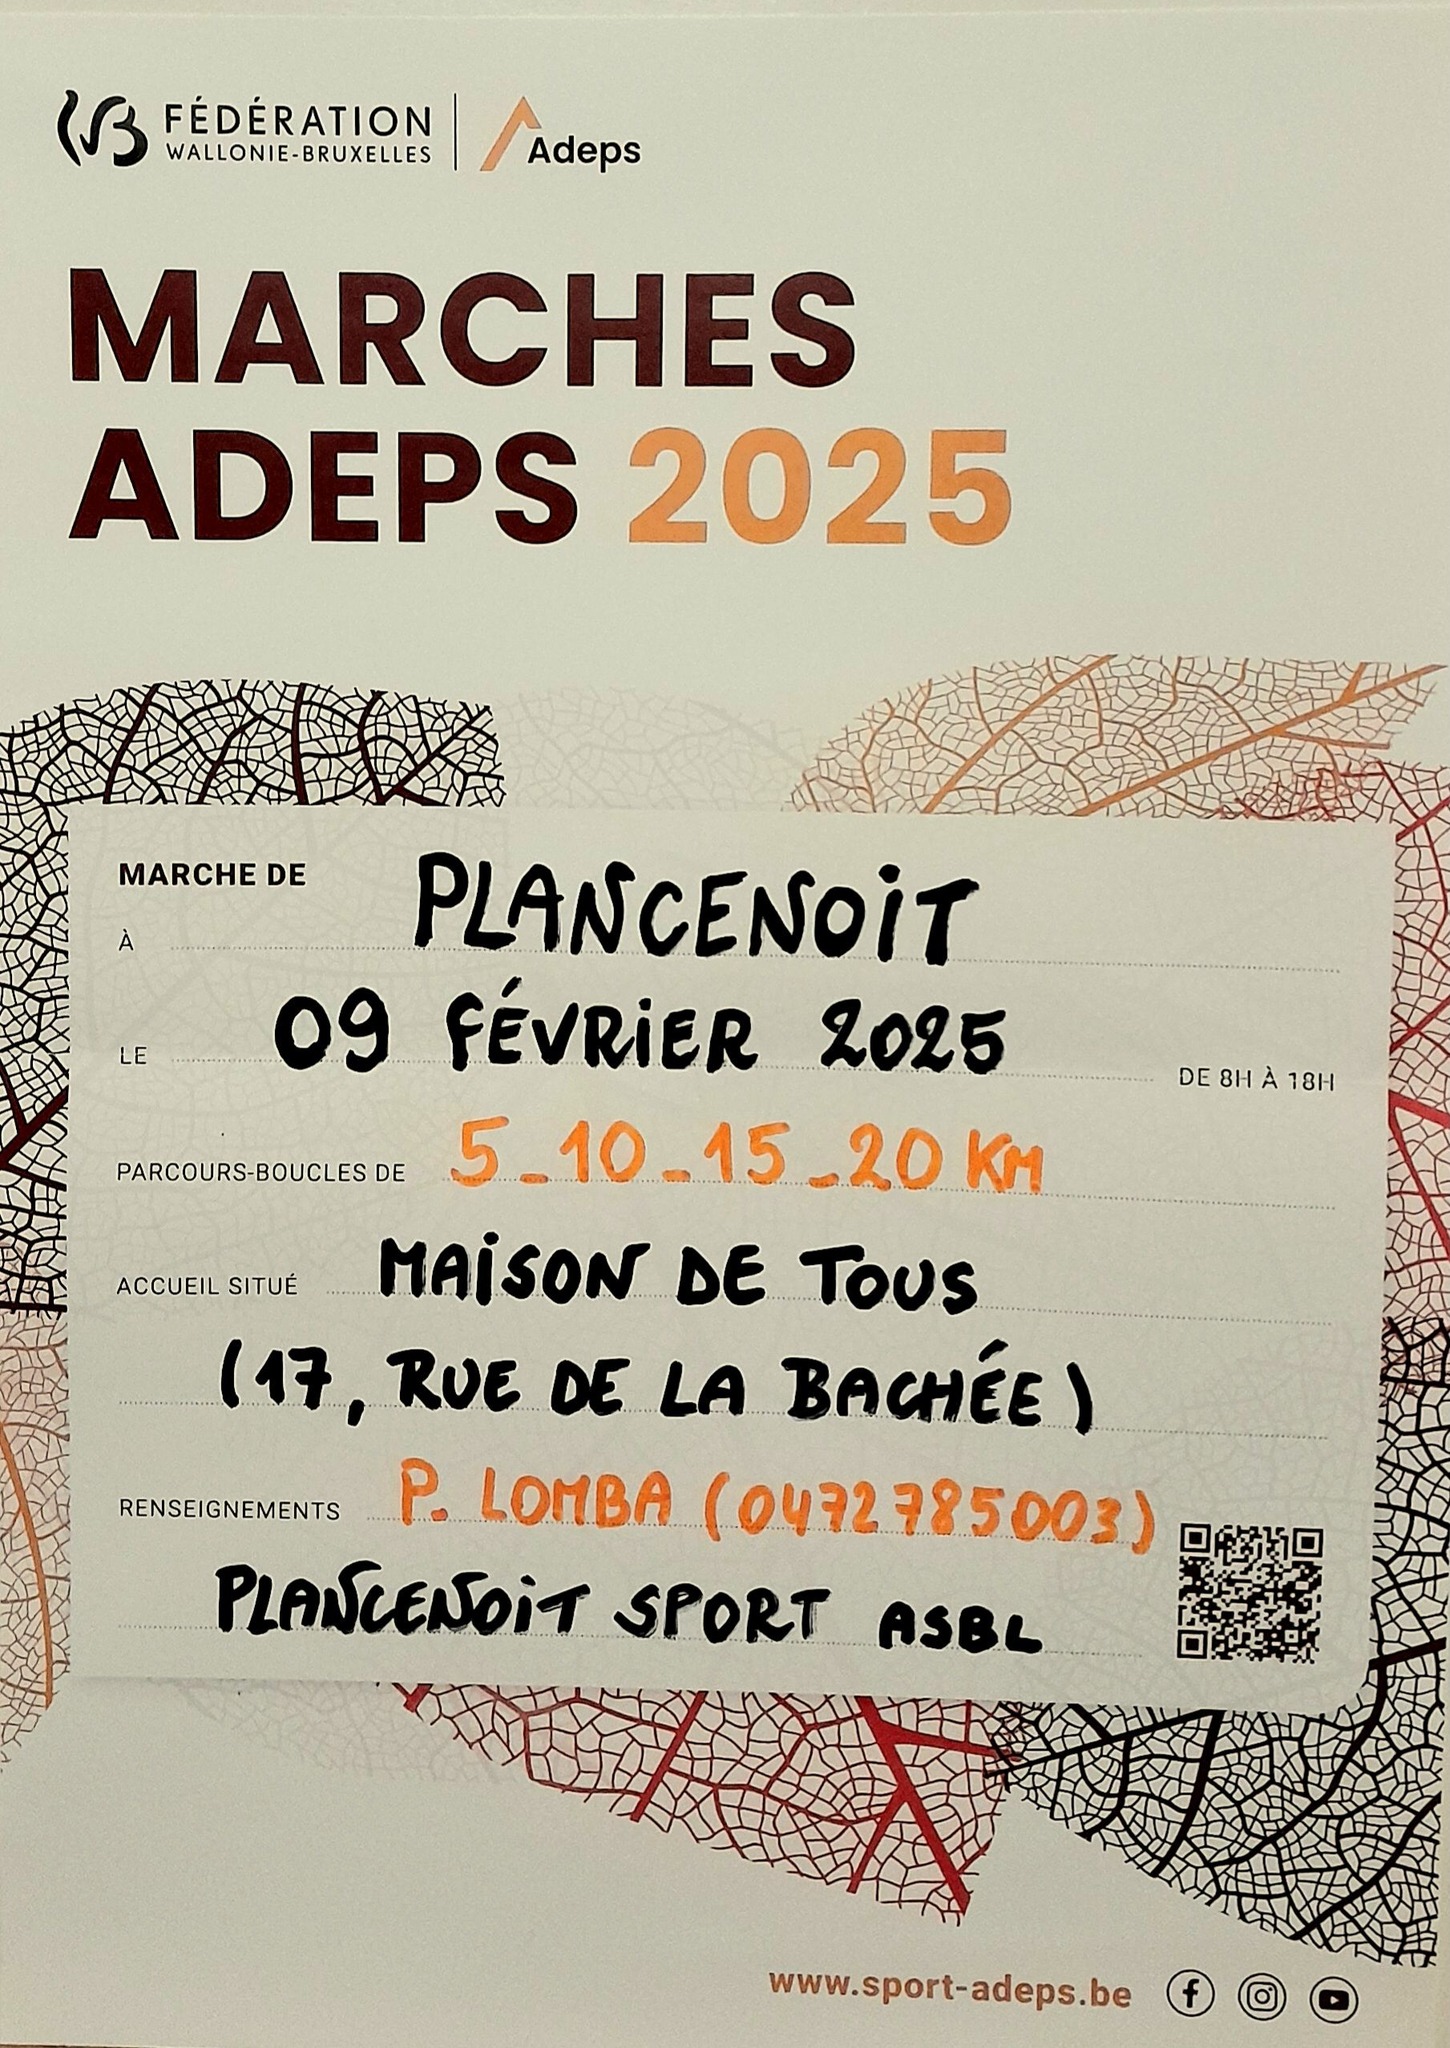 FÉDÉRATION
WALLONIE-BRUXELLES
Adeps
MARCHES
ADEPS 2025
MARCHE DE
À PLANCENOIT
LE 09 FÉVRIER 2025 DE 8H À 18H
PARCOURS-BOUCLES DE 5_10_15_20 KM
ACCUEIL SITUÉ MAISON DE TOUS
(17, RUE DE LA BACHÉE)
RENSEIGNEMENTS P. LOMBA (0472785003)
PLANCENOIT SPORT ASBL
www.sport-adeps.be